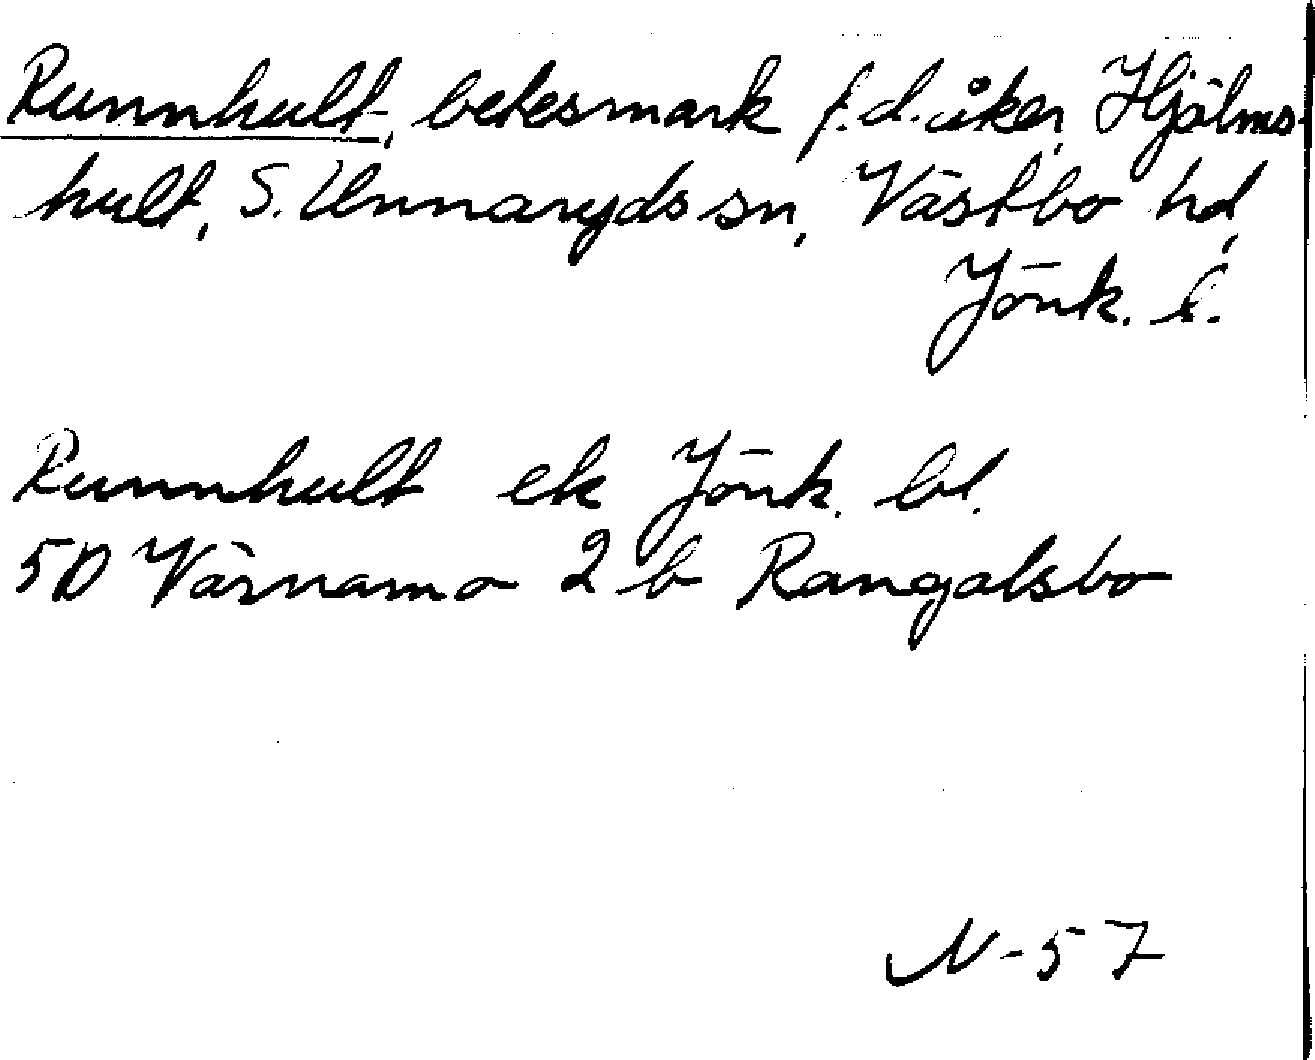 Runnhult, betesmark f.d. åker, Hjälms-
hult, S. Unnaryds sn, Västbo hd,
Jönk. l.
Runnhult ek Jönk. bl.
5D Värnamo 2 b Rangalsbo
N-57